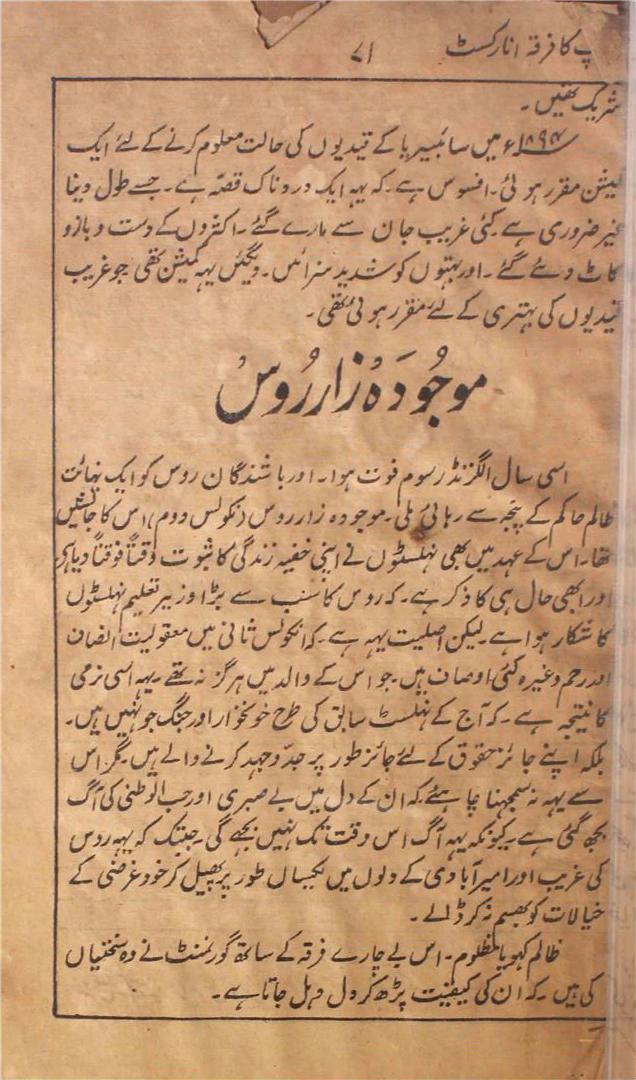 پ کا فرقہ انارکسٹ ۷۱
شریک تھیں۔
۱۸۹۴ء میں سائبیریا کے قیدیوں کی حالت معلوم کرنے کے لئے ایک
کمیشن مقرر ہوئی۔ افسوس ہے۔ کہ یہہ ایک دردناک قصّہ ہے۔ جسے طول دینا
غیر ضروری ہے کئی غریب جان سے مارے گئے۔ اکثروں کے دست و بازو
کاٹ دئے گئے۔ اور بہتوں کو شدید سزائیں۔ دیگئیں یہہ کمیشن تھی جو غریب
قیدیوں کی بہتری کے لئے مقرر ہوئی تھی۔
موجُودَہ زار رُوس
اسی سال الگزنڈر سوم فوت ہوا۔ اور باشندگان روس کو ایک نہائت
ظالم حاکم کے پنجہ سے رہائی ملی۔ موجودہ زار روس (نکولس دوم) اس کا جانشین
تھا۔ اس کے عہد میں بھی نہلسٹوں نے اپنی خفیہ زندگی کا ثبوت وقتاً فوقتاً دیا ہے
اور ابھی حال ہی کا ذکر ہے۔ کہ روس کا سب سے بڑا وزیر تعلیم نہلسٹوں
کا شکار ہوا ہے۔ لیکن اصلیت یہہ ہے۔ کہ نکولس ثانی میں معقولیت انصاف
اور رحم وغیرہ کئی اوصاف ہیں۔ جو اس کے والد میں ہرگز نہ تھے۔ یہہ اسی نرمی
کا نتیجہ ہے۔ کہ آج کے نہلسٹ سابق کی طرح خونخوار اور جنگ جو نہیں ہیں۔
بلکہ اپنے جائز حقوق کے لئے جائز طور پر جدّ و جہد کرنے والے ہیں۔ مگر اس
سے یہہ نہ سمجھنا چاہئے کہ ان کے دل میں بے صبری اور حب الوطنی کی آگ
بجھ گئی ہے۔ کیونکہ یہہ آگ اس وقت تک نہیں بجھے گی۔ جبتک کہ یہہ روس
کی غریب اور امیر آبادی کے دلوں میں یکساں طور پر پھیل کر خود غرضی کے
خیالات کو بھسم نہ کر ڈالے۔
ظالم کہو یا مظلوم۔ اس بے چارے فرقہ کے ساتھ گورنمنٹ نے وہ سختیاں
کی ہیں۔ کہ ان کی کیفیت پڑھ کر دل دہل جاتا ہے۔